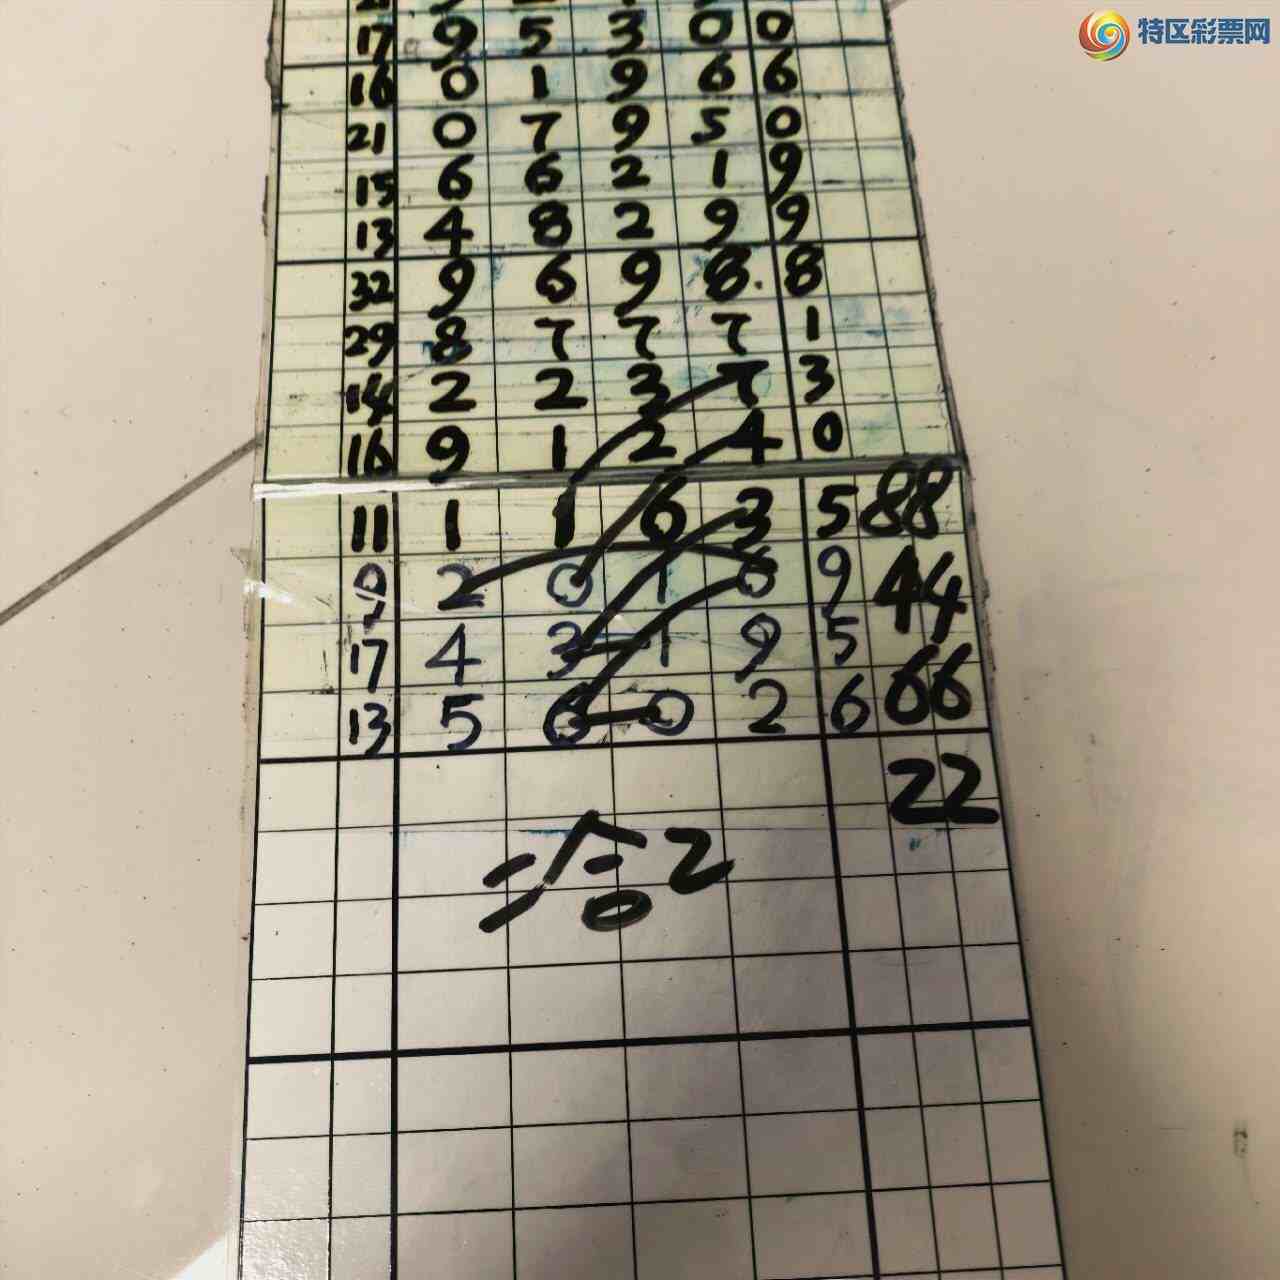 特区彩票网
17 9 5 3 0 0
16 0 1 9 6 6
21 0 7 9 5 0
15 6 6 2 1 9
13 4 8 2 9 9
32 9 6 9 8. 8
29 8 7 7 7 1
14 2 2 3 7 3
16 9 1 2 4 0
11 1 1 6 3 5 88
9 2 0 1 6 9 44
17 4 3 1 9 5 66
13 5 6 0 2 6
22
二 合 2